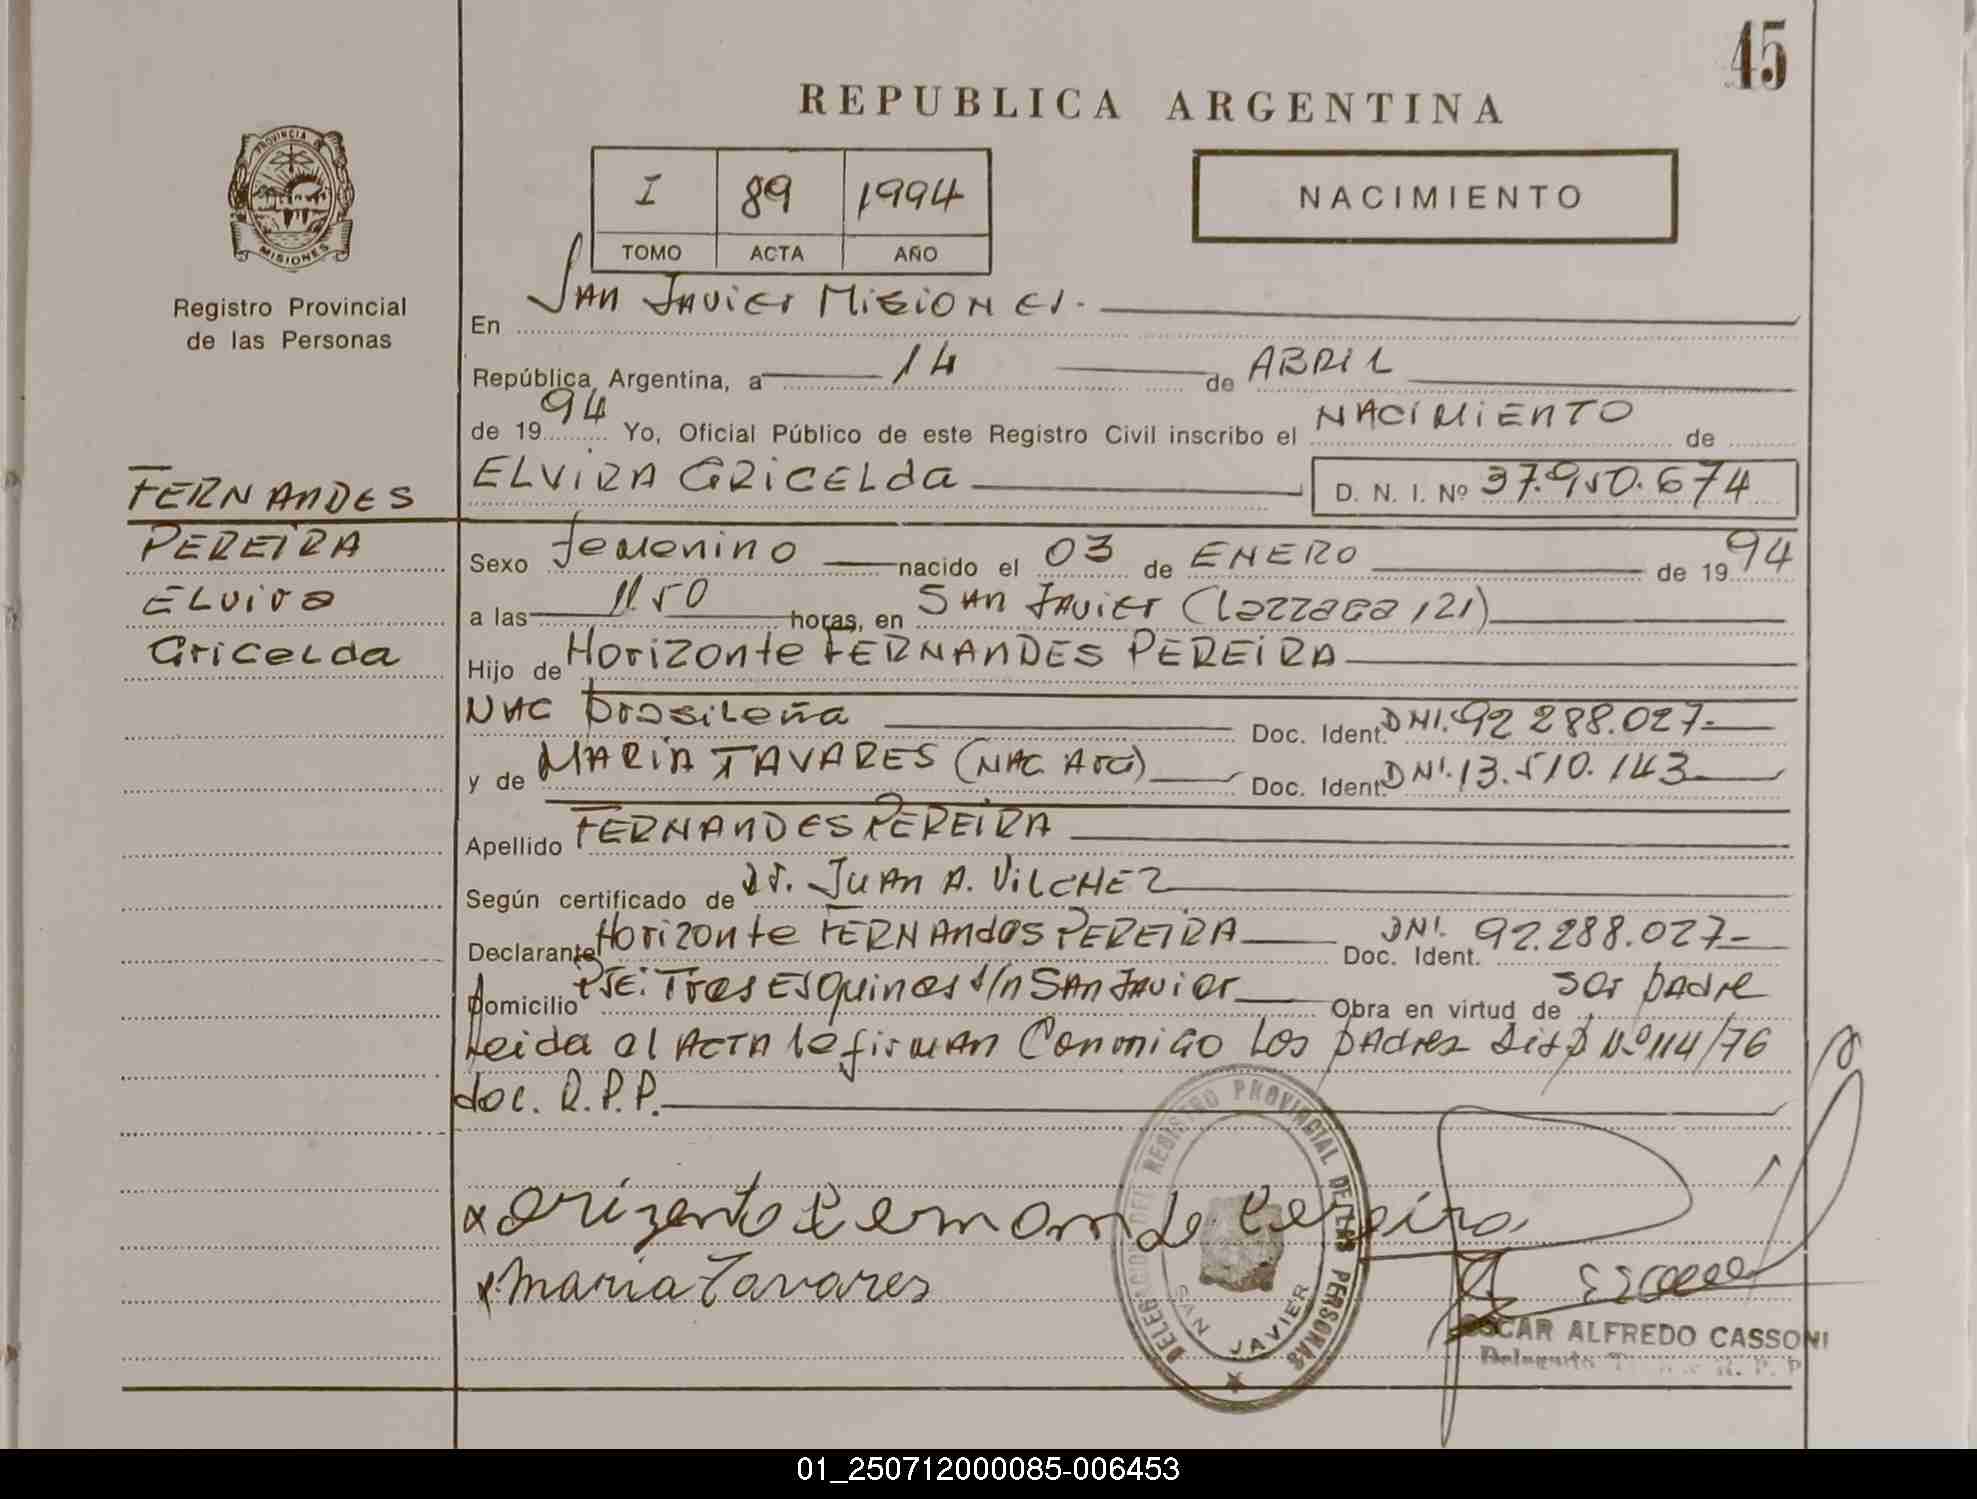 45
REPUBLICA ARGENTINA
PROVINCIA DE
MISIONES
I 89 1994
TOMO ACTA AÑO
NACIMIENTO
Registro Provincial
de las Personas
En SAN JAVIER MISIONES.
República Argentina, a 14 de ABRIL
de 1994 Yo, Oficial Público de este Registro Civil inscribo el NACIMIENTO de
ELVIRA GRICELda D. N. I. Nº 37.950.674
FERNANDES
PEREIRA
ELvira
GriceLda
Sexo femenino nacido el 03 de ENERO de 1994
a las 11 50 horas, en SAN JAVIER (Larraga 121)
Hijo de Horizonte FERNANDES PEREIRA
NAC brasileña Doc. Ident. DNI. 92 288.027-
y de MARIA TAVARES (NAC. ARG) Doc. Ident. DNI. 13.510.143
Apellido FERNANDES PEREIRA
Según certificado de Dr. JUAN A. VILCHEZ
Declarante Horizonte FERNANdes PEREIRA DNI. Doc. Ident. 92.288.027-
Domicilio Pje: Tres Esquinas s/n SAN Javier Obra en virtud de ser padre
Leida el ACTA la firman Conmigo los padres Disp Nº 114/76
doc. R.P.P.
x Orizonto Fernande Pereira
x Maria Tavares
DELEGACION DEL REGISTRO PROVINCIAL DE LAS PERSONAS
SAN JAVIER
OSCAR ALFREDO CASSONI
Delegado R. P. P.
01_250712000085-006453